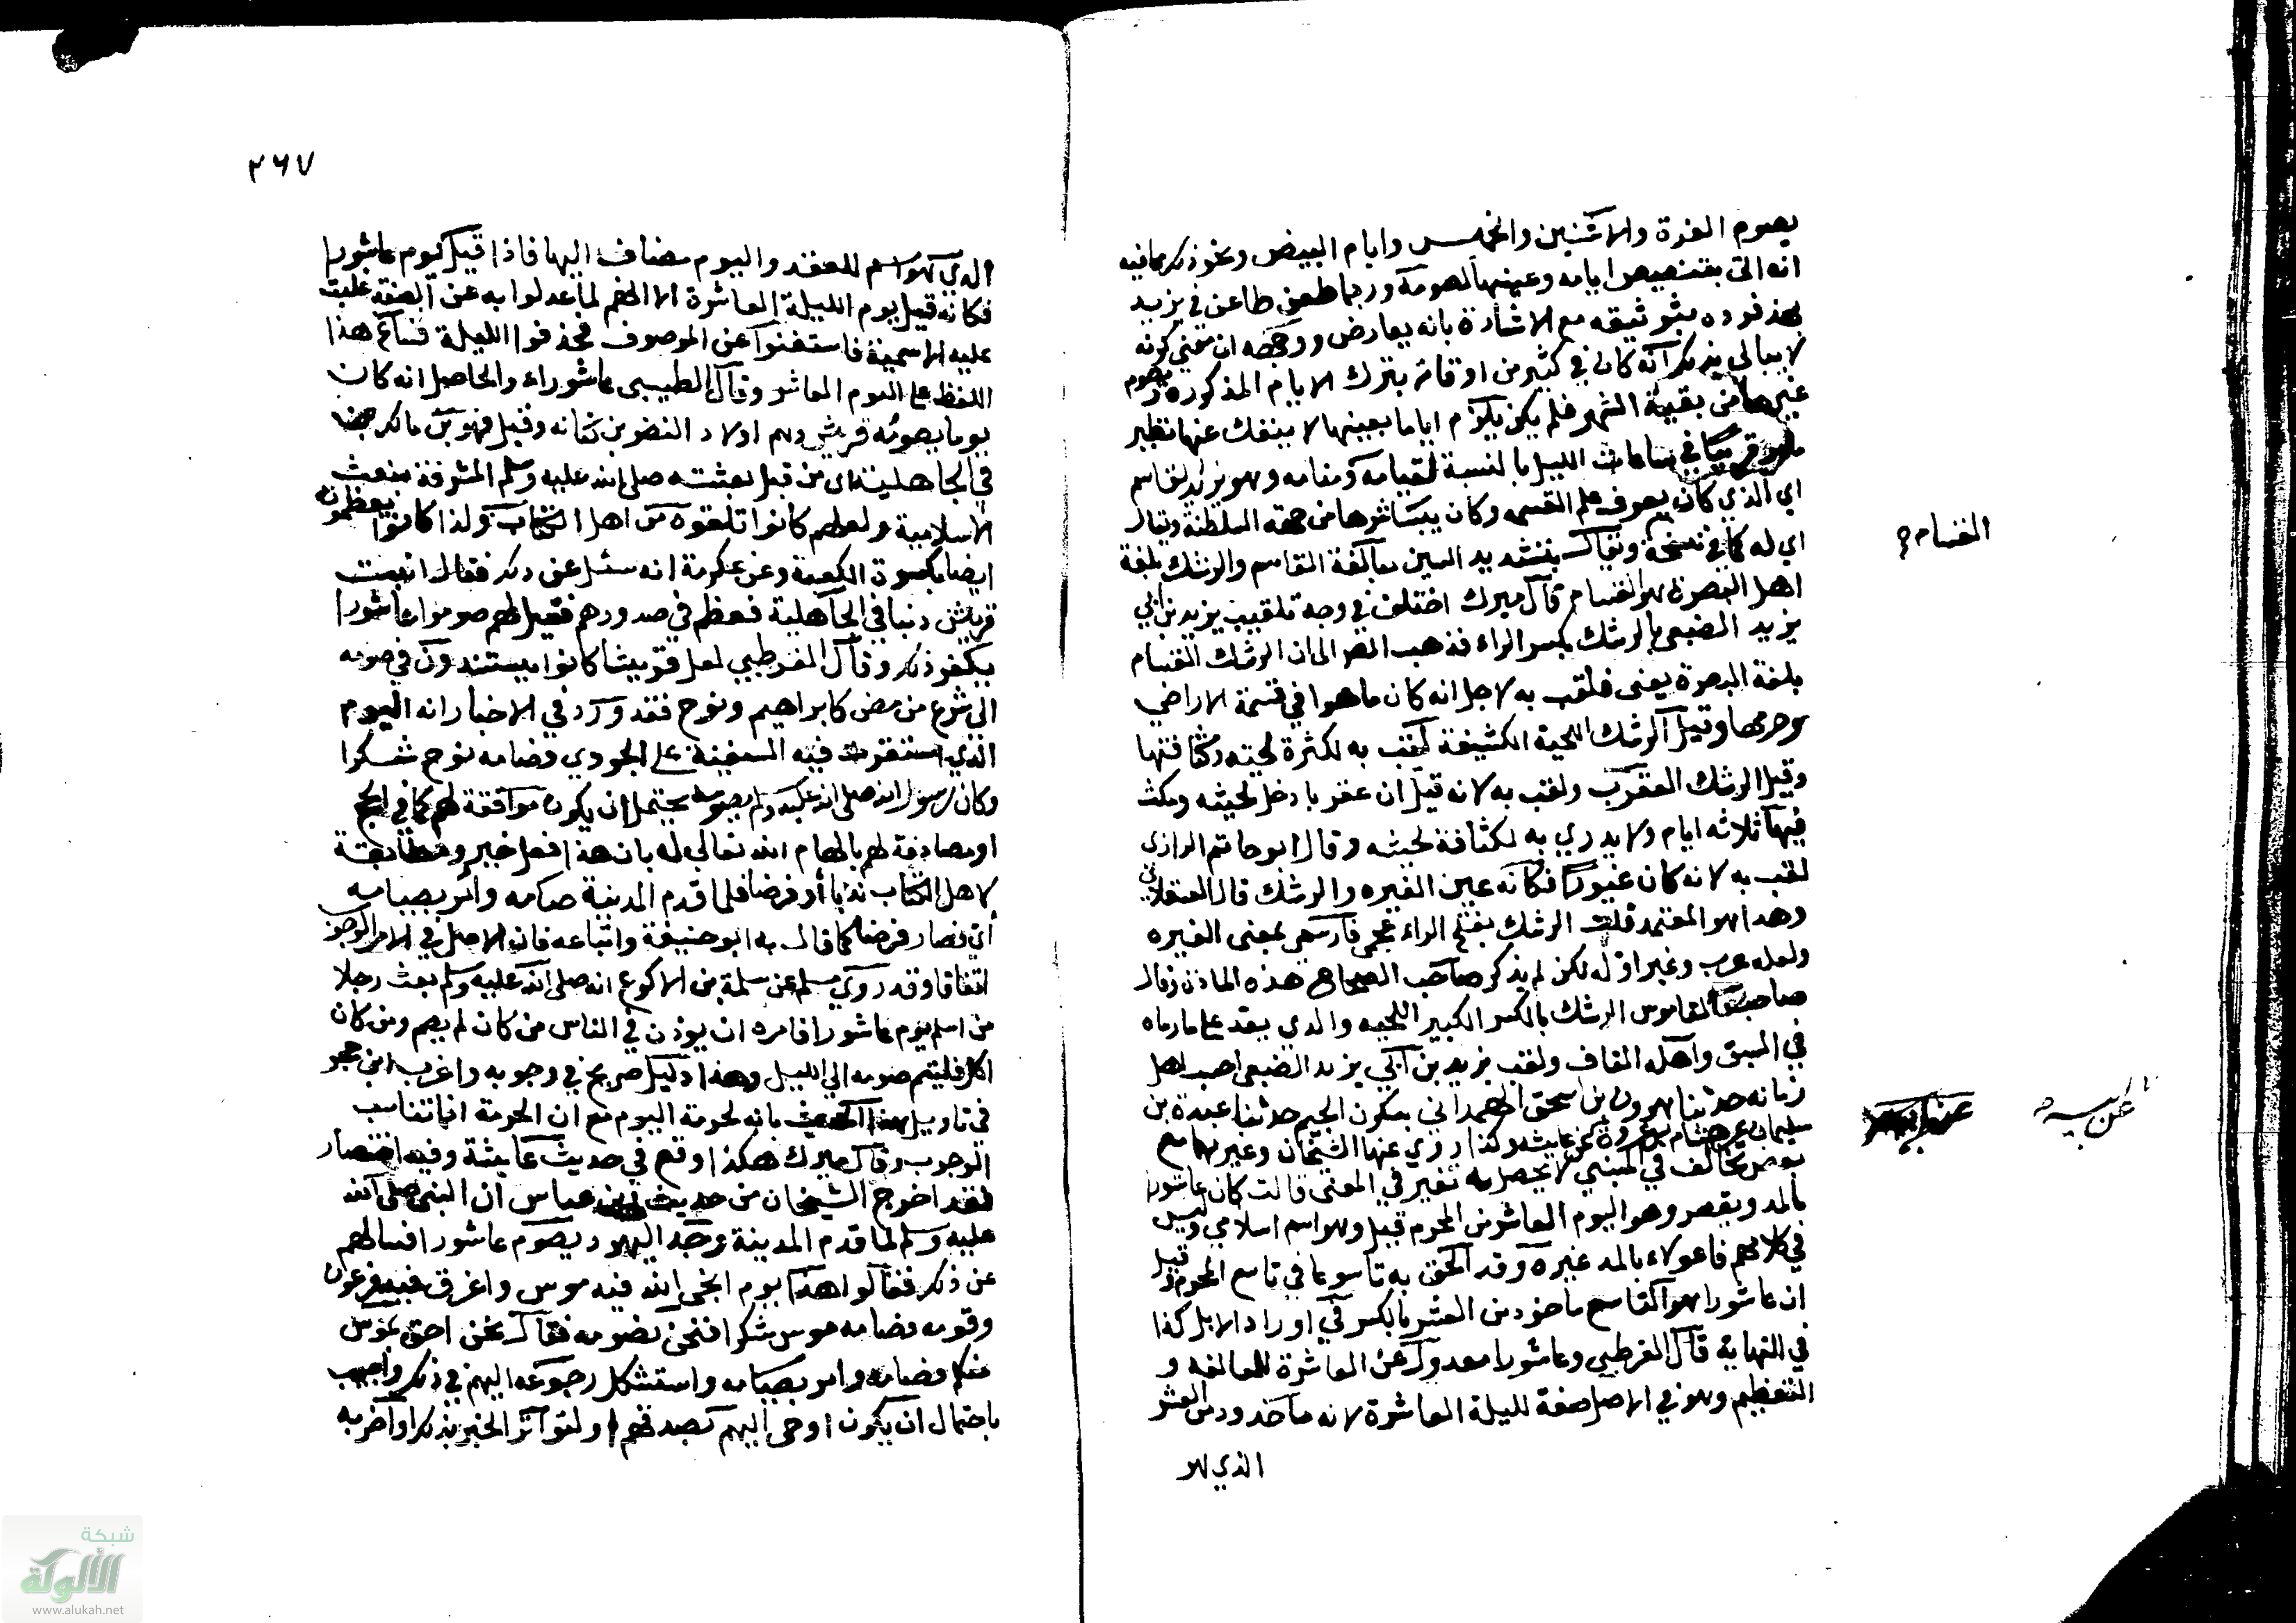 يصوم الغرة والاثنين والخميس وايام البيض ونحو ذلك مما فيه
انه اتى بتخصيص ايامه وعينها لصومه وربما طعن طاعن في يزيد
بتوثيقه مع الاشارة بانه يعارض ووجهه ان معنى كونه
لا يبالي بذلك انه كان في كثير من اوقاته يترك الايام المذكورة ويصوم
غيرها من بقية الشهر فلم يكن يلزم اياما بعينها لا ينفك عنها نظير
ما مر قريبا في ساعات الليل بالنسبة لقيامه ومنامه وهو يزيد القاسم
اي الذي كان يعرف علم القسمه وكان يباشرها من جهة السلطنة ويقال
اي له كما في نسخة ويقال بتشديد السين مبالغة القاسم والرشك بلغة
اهل البصرة هو القسام قال ميرك اختلف في وجه تلقيب يزيد بن ابي
يزيد الضبعي بالرشك بكسر الراء فذهب المصر الى ان الرشك القسام
بلغة البصرة يعني فلقب به لاجل انه كان ماهرا في قسمة الاراضي
وقيل الرشك اللحية الكثيفة لقب به لكثرة لحيته وكثافتها
وقيل الرشك العقرب ولقب به لانه قيل ان عقربا دخل لحيته ومكث
فيها ثلاثه ايام ولا يدري به لكثافة لحيته وقال ابو حاتم الرازي
لقب به لانه كان غيورا فكانه عين الغيره والرشك قال العسقلاني
وهذا هو المعتمد قلت الرشك بفتح الراء عجمي فارسي بمعنى الغيره
ولعله عرب وغير اوله لكن لم يذكر صاحب الصحاح هذه المادة وقال
صاحب القاموس الرشك بالكسر الكبير اللحيه والذي يعد على الرماه
في السبق واصله القاف ولقب يزيد بن ابي يزيد الضبعي احسب اهل
زمانه حدثنا هرون بن اسحق الهمداني بسكون الميم حدثنا عبدة بن
سليمان عن هشام بن عروة عن عايشه وكذا روي عنها الشيخان وغيرهما مع
بعض تخالف في المبنى لا يحصل به تغير في المعنى قالت كان عاشورا
بالمد ويقصر وهو اليوم العاشر من المحرم قيل وهو اسم اسلامي وليس
في كلامهم فاعولاء بالمد غيره وقد الحق به تاسوعا في تاسع المحرم وقيل
ان عاشورا هو التاسع ماخوذ من العشر بالكسر في اوراد الابل كذا
في النهاية قال القرطبي وعاشورا معدول عن العاشرة للمبالغه و
التعظيم وهو في الاصل صفة لليلة العاشرة لانه ماخوذ من العشر
الذي هو
القسام
عن ابيه
عن ابيه
٢٦٧
الذي هو اسم للعقد واليوم مضاف اليها فاذا قيل يوم عاشورا
فكانه قيل يوم الليلة العاشرة الا انهم لما عدلوا به عن الصفة غلبت
عليه الاسمية فاستغنوا عن الموصوف فحذفوا الليلة فشاع هذا
اللفظ على اليوم العاشر وقال الطيبي عاشوراء والحاصل انه كان
يوما يصومه قريش وهم اولاد النضر بن كنانه وقيل فهر بن مالك
في الجاهلية اي من قبل بعثته صلى الله عليه وسلم المشرفة
الاسلامية ولعلهم كانوا تلقوه من اهل الكتاب ولذا كانوا يعظمونه
ايضا بكسوة الكعبة وعن عكرمة انه سئل عن ذلك فقال اذنبت
قريش ذنبا في الجاهلية فعظم في صدورهم فقيل لهم صوموا عاشورا
يكفر ذلك وقال القرطبي لعل قريشا كانوا يستندون في صومه
الى شرع من مضى كابراهيم ونوح فقد ورد في الاخبار انه اليوم
الذي استقرت فيه السفينة على الجودي فصامه نوح شكرا
وكان رسول الله صلى الله عليه وسلم يصومه يحتمل ان يكون موافقة لهم كما في الحج
او مصادفة لهم بالهام الله تعالى له بان هذا فعل خير او مطابقة
لاهل الكتاب ندبا او فرضا فلما قدم المدينة صامه وامر بصيامه
اي فصار فرضا كما قال به ابو حنيفة واتباعه فان الاصل في الامر الوجوب
اتفاقا وقد روى مسلم عن سلمة بن الاكوع انه صلى الله عليه وسلم بعث رجلا
من اسلم يوم عاشورا فامره ان يوذن في الناس من كان لم يصم ومن كان
اكل فليتم صومه الى الليل وهذا دليل صريح في وجوبه واغرب ابن حجر
في تاويل هذا الحديث بانه لحرمة اليوم مع ان الحرمة انما تناسب
الوجوب وقال ميرك هكذا وقع في حديث عايشة وفيه اختصار
فقد اخرج الشيخان من حديث ابن عباس ان النبي صلى الله
عليه وسلم لما قدم المدينة وجد اليهود يصوم عاشورا فسالهم
عن ذلك فقالوا هذا يوم انجى الله فيه موسى واغرق فيه فرعون
وقومه فصامه موسى شكرا فنحن نصومه فقال نحن احق بموسى
منكم فصامه وامر بصيامه واستشكل رجوعه اليهم في ذلك واجيب
باحتمال ان يكون اوحي اليهم بصدقهم او لتواتر الخبر بذلك او اخبر به